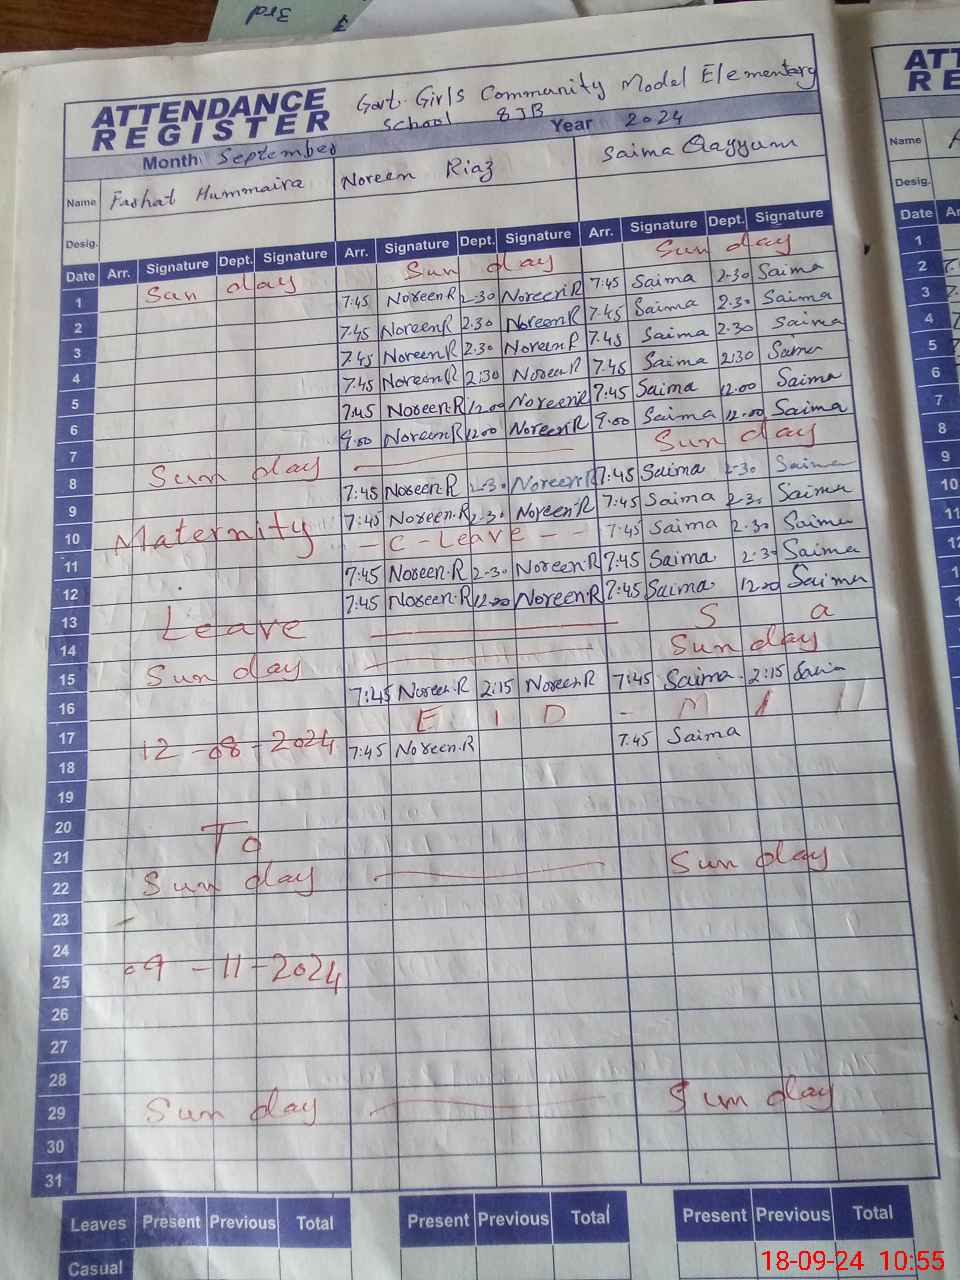 3rd
ATTENDANCE REGISTER
Govt. Girls Community Model Elementary
School 8JB
Month September Year 2024
Name Farhat Hummaira Noreen Riaz Saima Qayyum
Desig.
Date Arr. Signature Dept. Signature Arr. Signature Dept. Signature Arr. Signature Dept. Signature
1 Sunday Sunday Sunday
2 7:45 Noreen.R 2-30 Noreen.R 7:45 Saima 2-30 Saima
3 7:45 Noreen.R 2.30 Noreen.R 7.45 Saima 2.30 Saima
4 7:45 Noreen.R 2.30 Noreen.R 7.45 Saima 2.30 Saima
5 7:45 Noreen.R 2:30 Noreen.R 7.45 Saima 2:30 Saima
6 7:45 Noreen.R 12.00 Noreen.R 7:45 Saima 12.00 Saima
7 9.00 Noreen.R 12.00 Noreen.R 9.00 Saima 12.00 Saima
8 Sunday Sunday
9 7:45 Noreen.R 2-30 Noreen.R 7:45 Saima 2-30 Saima
10 Maternity 7:45 Noreen.R 2-30 Noreen.R 7:45 Saima 2-30 Saima
11 - C - Leave - - 7:45 Saima 2-30 Saima
12 7:45 Noreen.R 2-30 Noreen.R 7:45 Saima 2-30 Saima
13 Leave 7:45 Noreen.R 12.00 Noreen.R 7:45 Saima 12.00 Saima
14 S a
15 Sunday Sunday
16 7:45 Noreen.R 2:15 Noreen.R 7:45 Saima 2:15 Saima
17 12-08-2024 E I D - M
18 7:45 Noreen.R 7.45 Saima
19
20
21 To
22 Sunday Sunday
23
24
25 09-11-2024
26
27
28
29 Sunday Sunday
30
31
Leaves Present Previous Total Present Previous Total Present Previous Total
Casual
ATT
RE
Name
Desig.
Date Ar
1
2
3
4
5
6
7
8
9
10
11
12
18-09-24 10:55